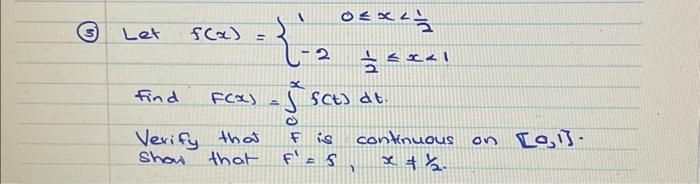 ⑤ Let f(x) = { 1 0 ≤ x < 1/2
-2 1/2 ≤ x < 1
find F(x) = ∫₀ˣ f(t) dt.
Verify that F is continuous on [0,1].
Show that F' = f, x ≠ 1/2.